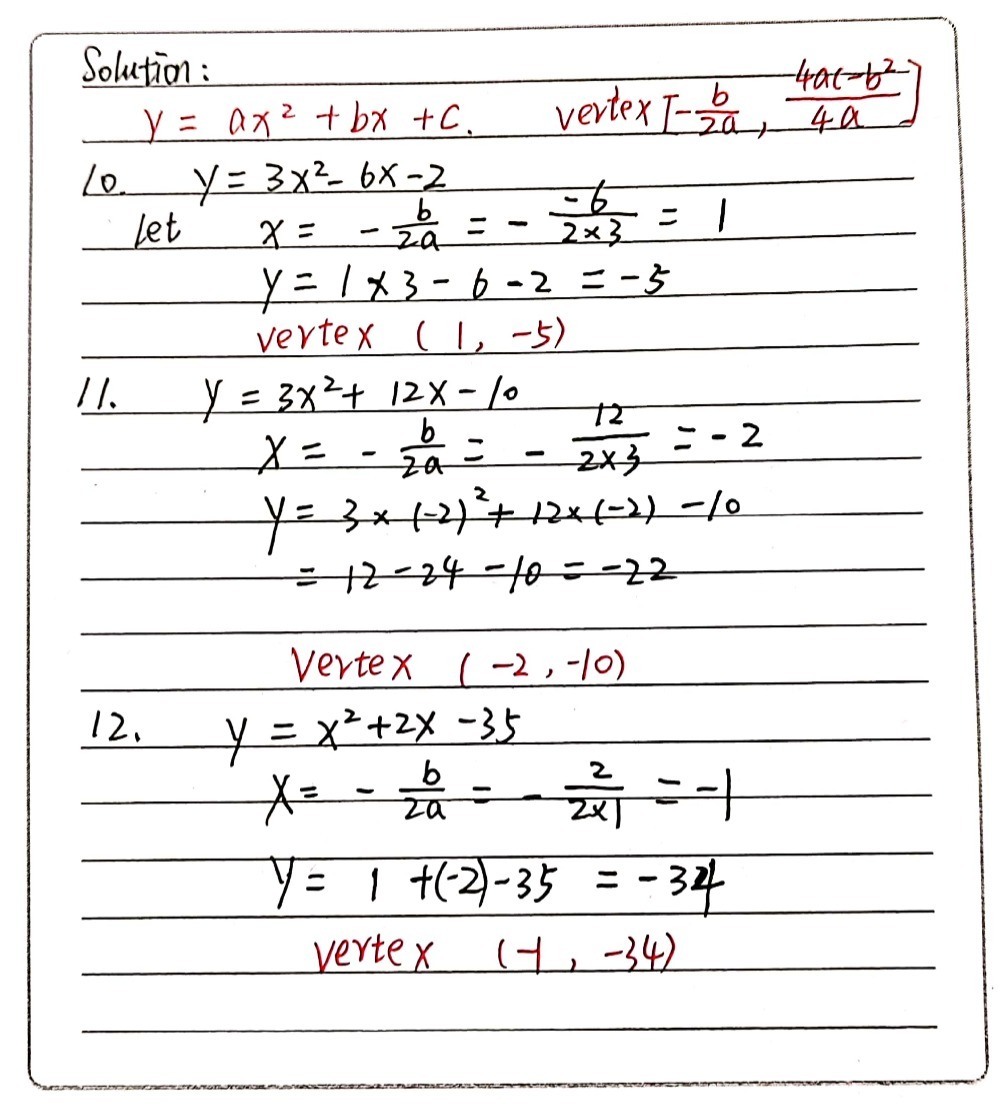 Solution:
y = ax² + bx + c. vertex [-b/2a, 4ac-b²/4a]
10. y = 3x² - 6x - 2
let x = - b/2a = - -6/2×3 = 1
y = 1 × 3 - 6 - 2 = -5
vertex (1, -5)
11. y = 3x² + 12x - 10
x = - b/2a = - 12/2×3 = -2
y = 3 × (-2)² + 12 × (-2) - 10
= 12 - 24 - 10 = -22
Vertex (-2, -10)
12. y = x² + 2x - 35
x = - b/2a = - 2/2×1 = -1
y = 1 + (-2) - 35 = -34
vertex (-1, -34)